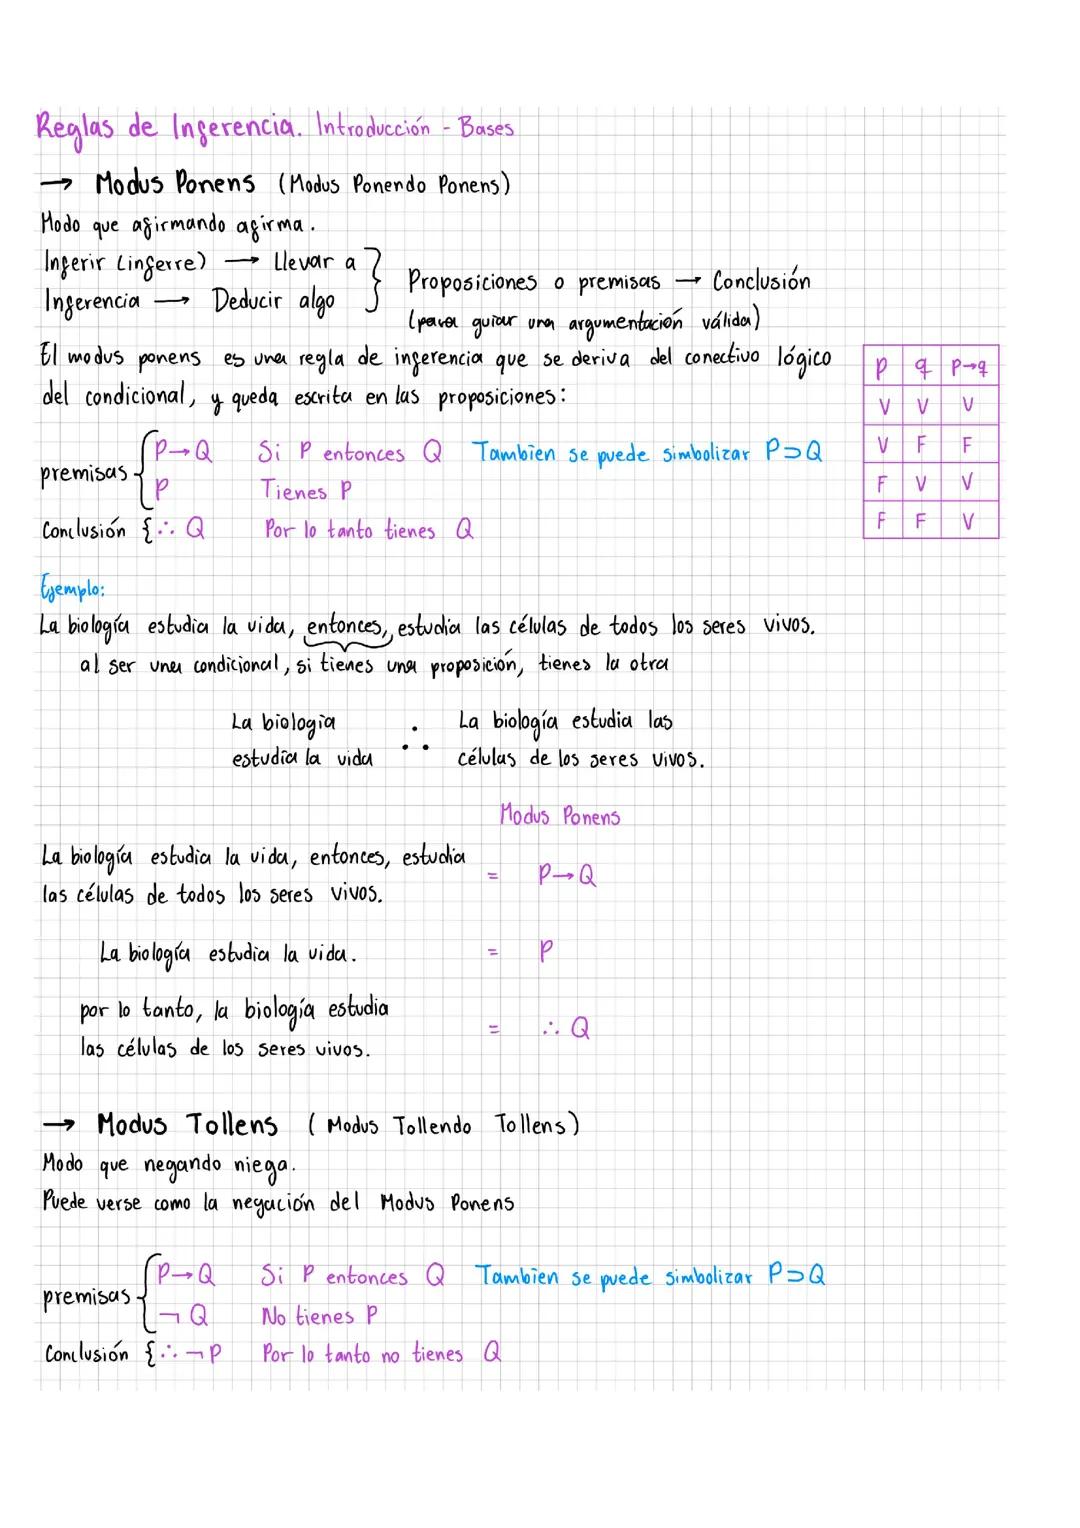 Reglas de Inferencia. Introducción - Bases
→ Modus Ponens (Modus Ponendo Ponens)
Modo que afirmando afirma.
Inferir (inferre) → Llevar a
Inferencia → Deducir algo
Proposiciones o premisas → Conclusión
(para guiar una argumentación válida)
El modus ponens es una regla de inferencia que se deriva del conectivo lógico
del condicional, y queda escrita en las proposiciones:
p q p→q
V V V
V F F
F V V
F F V
premisas { P→Q Si P entonces Q También se puede simbolizar P⊃Q
P Tienes P
Conclusión { ∴ Q Por lo tanto tienes Q
Ejemplo:
La biología estudia la vida, entonces, estudia las células de todos los seres vivos.
al ser una condicional, si tienes una proposición, tienes la otra
La biología
estudia la vida
∴
La biología estudia las
células de los seres vivos.
Modus Ponens
La biología estudia la vida, entonces, estudia
las células de todos los seres vivos.
= P→Q
La biología estudia la vida. = P
por lo tanto, la biología estudia
las células de los seres vivos.
= ∴ Q
→ Modus Tollens (Modus Tollendo Tollens)
Modo que negando niega.
Puede verse como la negación del Modus Ponens
premisas { P→Q Si P entonces Q También se puede simbolizar P⊃Q
¬Q No tienes P
Conclusión { ∴ ¬P Por lo tanto no tienes Q